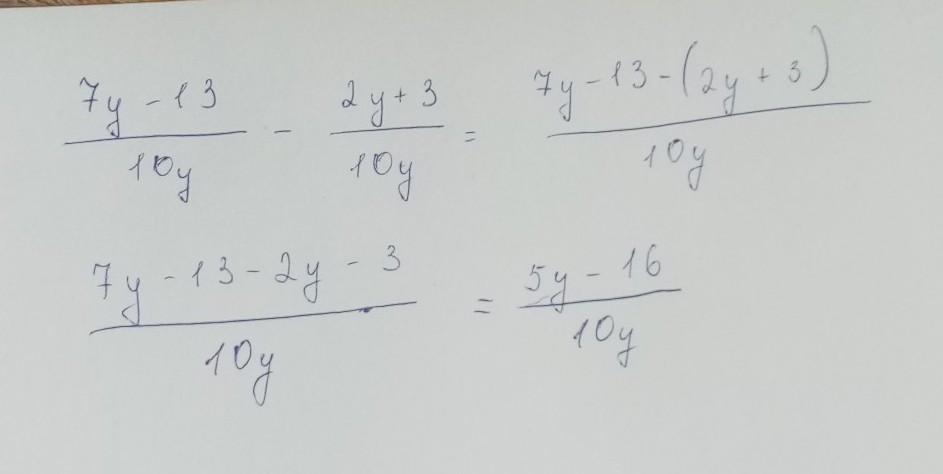 7y - 13 / 10y - 2y + 3 / 10y = 7y - 13 - (2y + 3) / 10y
7y - 13 - 2y - 3 / 10y = 5y - 16 / 10y